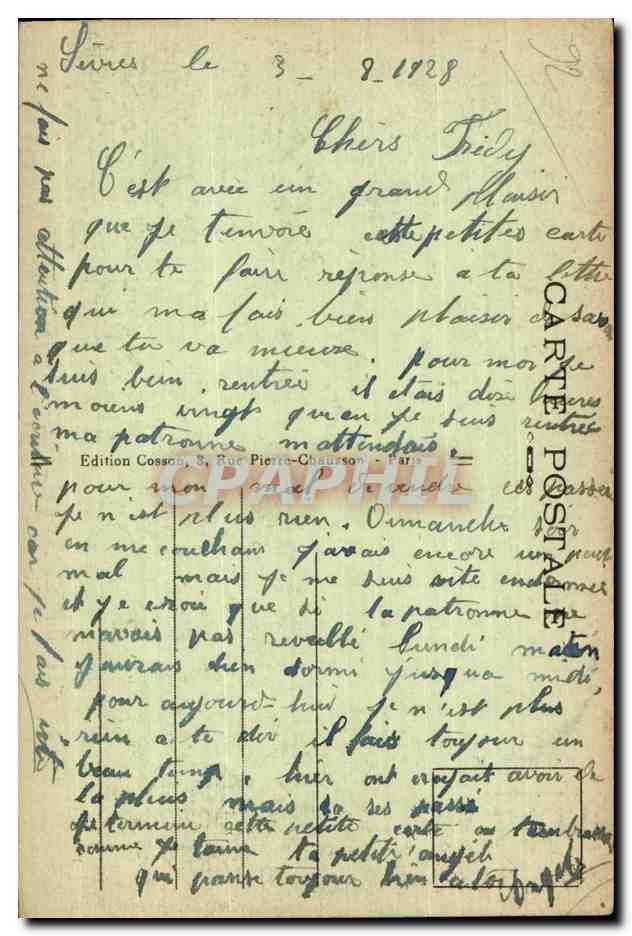 Sèvres le 3 - 8 - 1928
Chèrs Fredy
C'est avec un grand plaisir
que je t'envoie cette petites carte
pour te faire réponse a ta lettre
qui ma fais bien plaisir de savoir
que tu va mieuxe. pour moi je
suis bien rentrée il etais dixe heures
moiens vingt quen je suis rentrée
ma patronne m'attendais.
Edition Cosson, 3, Rue Pierre-Chausson - Paris
CARTE POSTALE
CPAPHIL
pour mon mal de ces passer
je n'est plus rien. Dimanche soir
en me couchans j'avais encore un peut
mal mais je me suis vite endormie
et je croie que si la patronne ne
mavais pas reveillé lundi matin
j'aurais bien dormi jusqua midi,
pour aujourd'hui je n'est plus
rien a te dir il fais toujour un
beau temp, hier ont croyait avoir de
la pluis mais sa ses passé
je termine cette petite carte en t'embrassan
comme je t'aime ta petite
qui panse toujour bien a toi Angèle
ne fais pas attention a l'ecriture car je fais vite